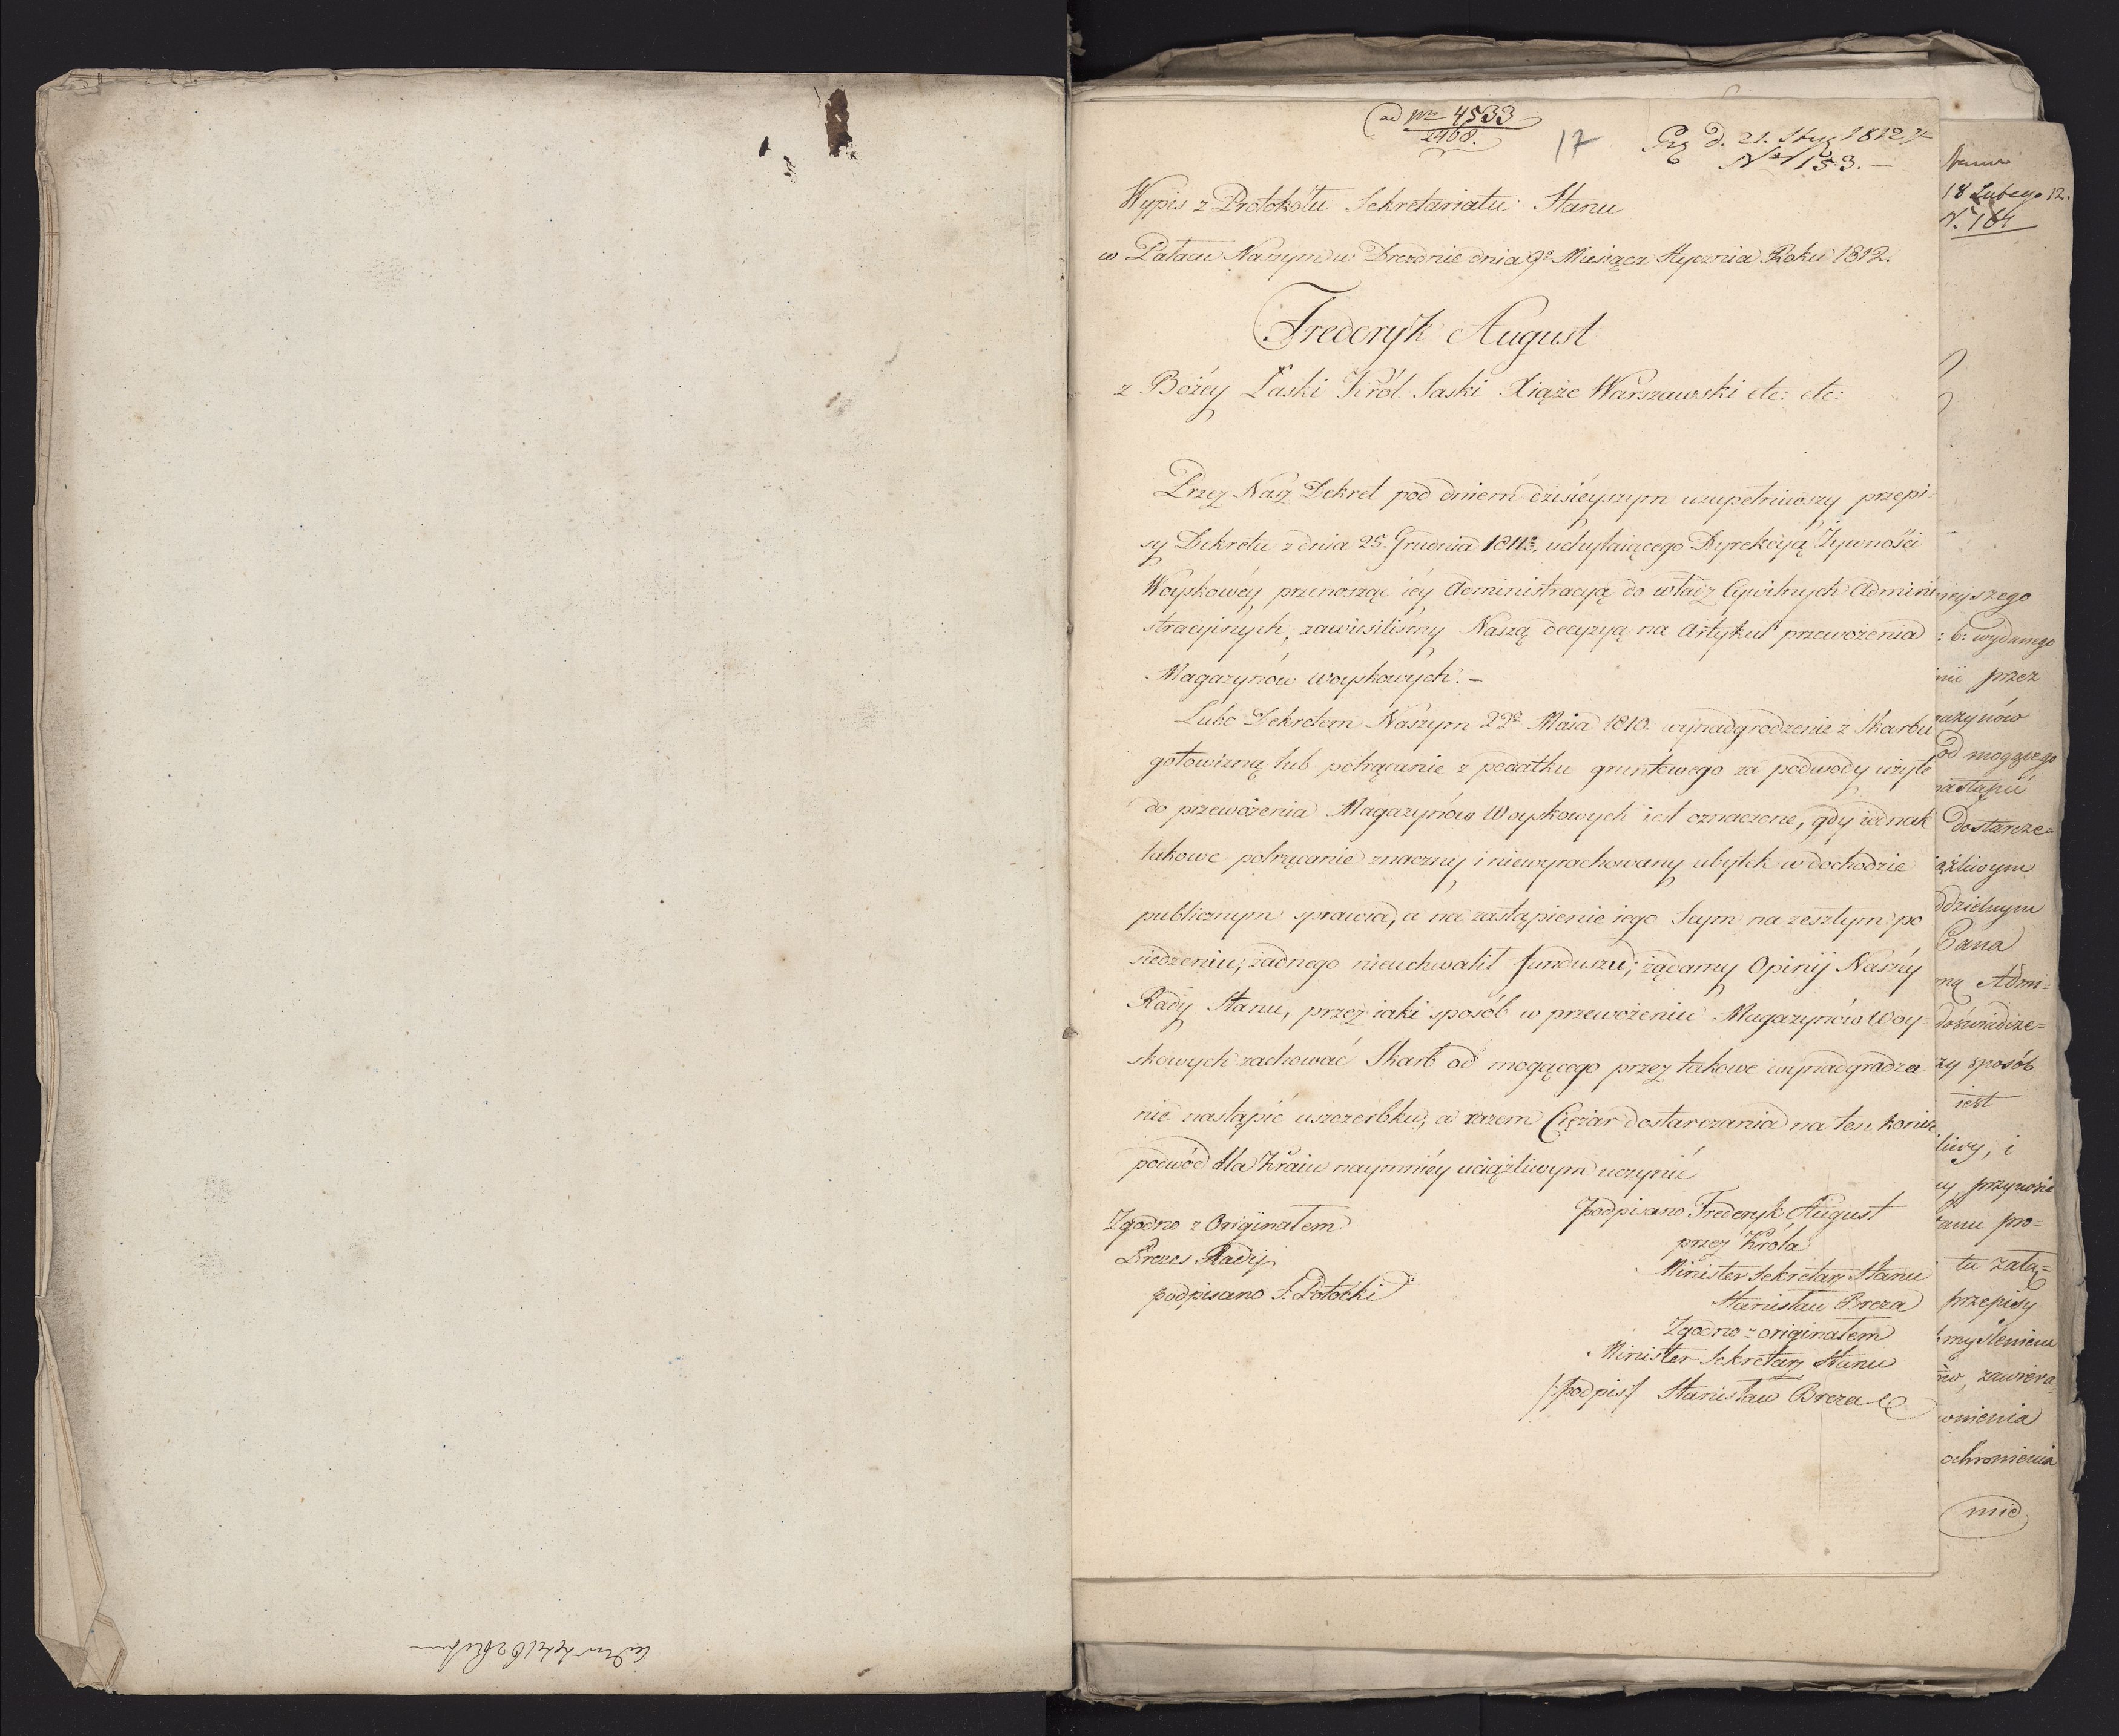 ad Nro 4533
2468.
17
Prz d. 21. Stycz 1812 r
No 1153. —
Wypis z Protokółu Sekretariatu Stanu
w Pałacu Naszym w Dreźdnie dnia 9o Miesiąca Stycznia Roku 1812.
Frederyk August
z Bożéy Łaski Król Saski Xiąże Warszawski etc: etc:
Przez Nasz Dekret pod dniem dzisiéyszym uzupełniwszy przepi-
sy Dekretu z dnia 25. Grudnia 1811 r. uchylaiącego Dyrekcyą Żywności
Woyskowéy przenosząc iéy Administracyą do władz Cywilnych Admini-
stracyinych, zawiesiliśmy Naszą decyzyą na Artykuł przewożenia
Magazynów woyskowych. —
Lubo Dekretem Naszym 22o Maia 1810. wynadgrodzenie z Skarbu
gotowizną lub potrącanie z podatku gruntowego za podwody użyte
do przewożenia Magazynów Woyskowych iest oznaczone, gdy iednak
takowe potrącanie znaczny i niewyrachowany ubytek w dochodzie
publicznym sprawia, a na zastąpienie iego Seym na zeszłym po
siedzeniu, żadnego nieuchwalił funduszu; żądamy Opinij Naszéy
Rady Stanu, przez iaki sposób w przewożeniu Magazynów Woy-
skowych zachować Skarb od mogącego przez takowe wynadgradza
nie nastąpić uszczerbku, a razem Ciężar dostarczania na ten koniec
podwód dla Kraiu naymniéy uciążliwym uczynić
podpisano Frederyk August
przez Króla
Minister Sekretarz Stanu
Stanisław Breza
Zgodno z originałem
Minister Sekretarz Stanu
/:podpis:/ Stanisław Breza
Zgodno z Originałem
Prezes Rady
podpisano S. Potocki
Stanu
18 Lutego 12.
N. 164
nieyszego
: b: wydanego
przez
gazynów
od mogącego
nastąpić
dostarcze=
ążliwym
ddzielnym
Pana
ną Admi=
doświadcze=
zy sposób
iest
liwy, i
y, przynosi
anu pro=
tu załą=
przepisy
myśleniem
ów, zawiera
wnienia
ochronienia
nie